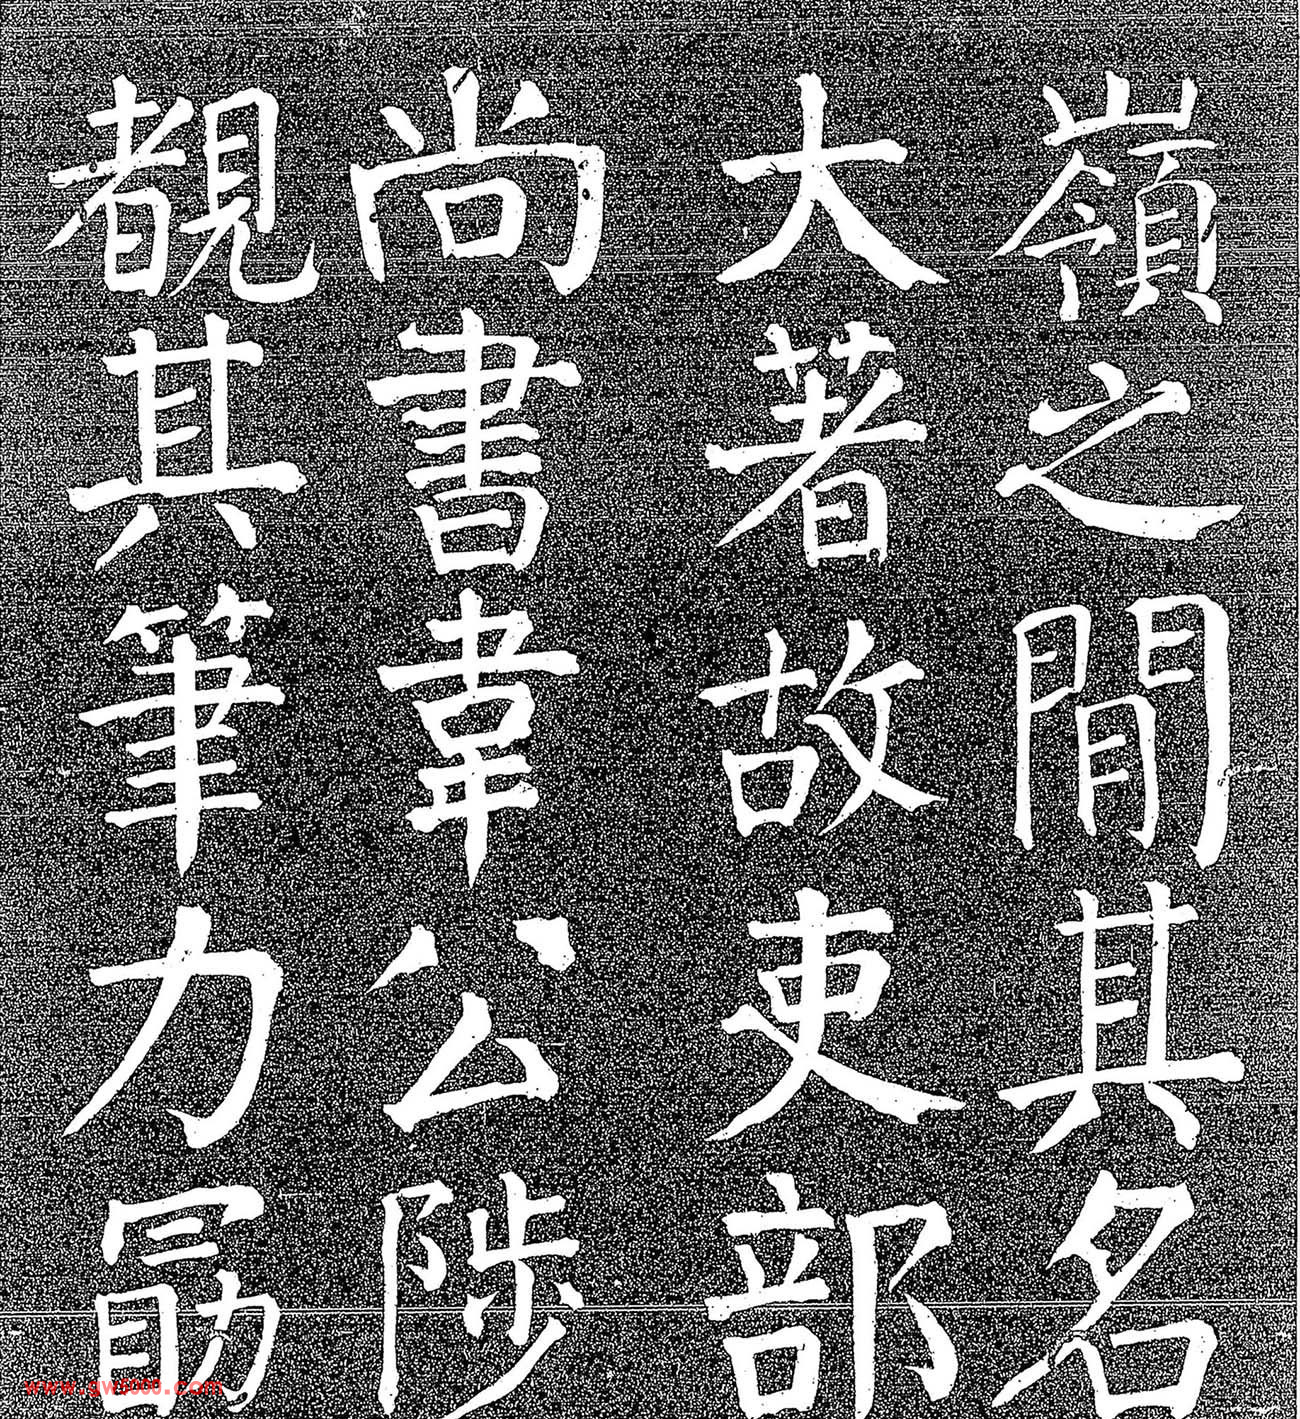 嶺之間其名
大著故吏部
尚書韋公陟
覩其筆力勗
www.gw5000.com